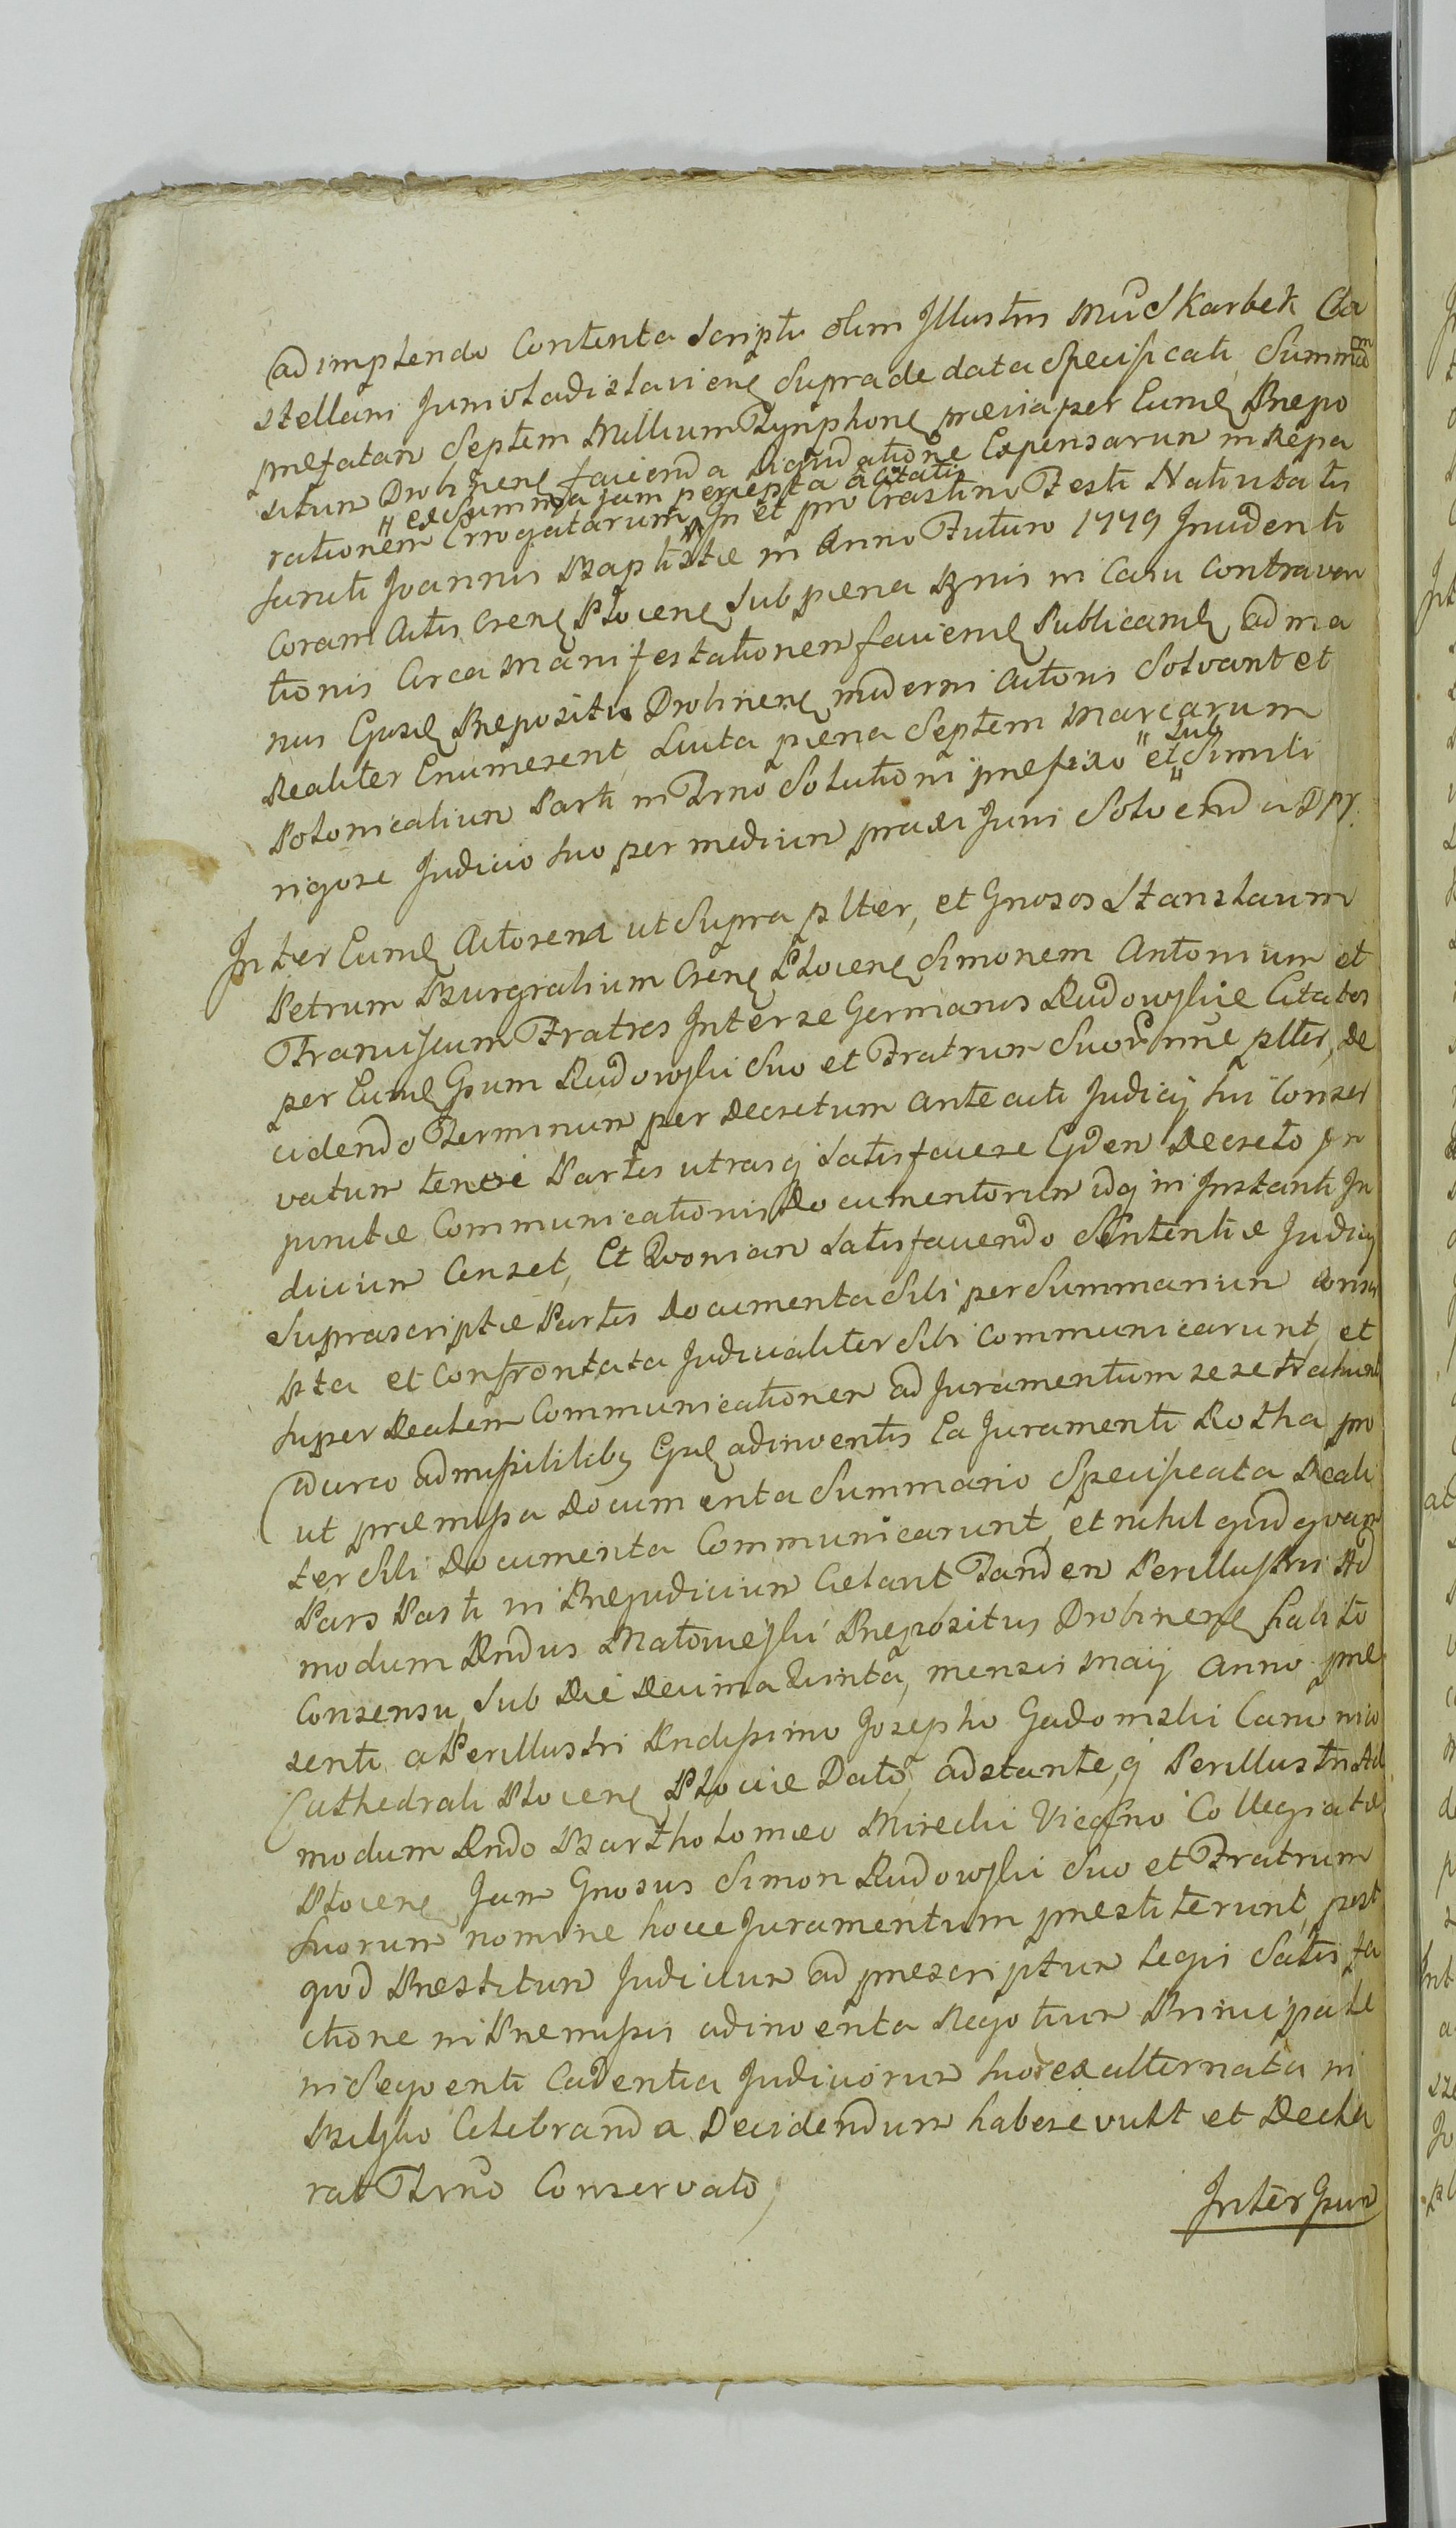 adimplendo Contenta Scripti olim Illustris Mci Skarbek Ca
stellani Juniwladislaviens Supra de data Specificati, Summam
prefatam Septem Millium Tynphone previa per Eumd Prepo
situm Drobinens facienda Liquidatione Expensarum in Repa
" ex Summa jam percepta à Citatis
rationem Errogatarum, In et pro Crastino Festi Nativitatis
Sancti Joannis Baptistæ in Anno Futuro 1779 Incidenti
Coram Actis Crens Plocens Sub pæna Bznis in Casu Contraven
tionis Circa Manifestationem faciend Publicand, ad ma
nus Gnsd Prepositi Drobinens moderni Actoris Solvant et
Realiter Enumerent, Luita pæna Septem Marcarum
" Sub
Polonicalium Parti in Trno Solutioni prefixo et Simili
rigore Judicio suo per medium praxi Juris Solvend a D pr.
Inter Eumd Actorem ut Supra plter, et Gnosos Stanslaum
Petrum Burgrabium Crens Plocens Simonem Antonium et
Franciscum Fratres Inter se Germanos Rudowskie Citatos
per Eumd Gsum Rudowski Suo et Fratrum Suor nne plter, De
cidendo Terminum per Decretum ante acti Judicij sui Conser
vatum teneri Partes utrasq Satisfacere Eidem Decreto in
puncto Communicationis Documentorum idq in Instanti Ju
dicium Censet, Et Quoniam Satisfaciendo Sententiæ Judicij
Suprascriptæ Partes Documenta Sibi per Summarium consi
sta et Confrontata Judicialiter Sibi Communicarunt, et
super Realem Communicationem ad Juramentum sese trahunt
adurco admissibilib9 Gsd adinventis Ea Juramenti Rotha pro
ut præmissa Documenta Summario Specificata Reali
ter Sibi Documenta Communicarunt, et nihil quidquam
Pars Parti in Prejudicium Celant Tandem Perillustris Ad
modum Rndus Matowieski Prepositus Drobinens habito
Consensu Sub Die Decima Quinta, mensis Maij Anno pre
senti a Perillustri Rndissimo Josepho Gadomski Canonico
Cathedrali Plocens Plociæ Dato, adstante,q Perillustri Ad
modum Rndo Bartholomæo Mirecki Vicario Collegiatæ
Plocens Jam Gnosus Simon Rudowski Suo et Fratrum
Suorum nomine hocce Juramentum prestiterunt, post
quod Prestitum Judicium ad prescriptum Legis Satisfa
ctione in Premissis adinventa Negotium Principale
in Seqventi Cadentia Judiciorum suor ex alternata in
Bielsko Celebranda Decidendum habere vult et Decla
rat Trno Conservato,
Inter Gsum